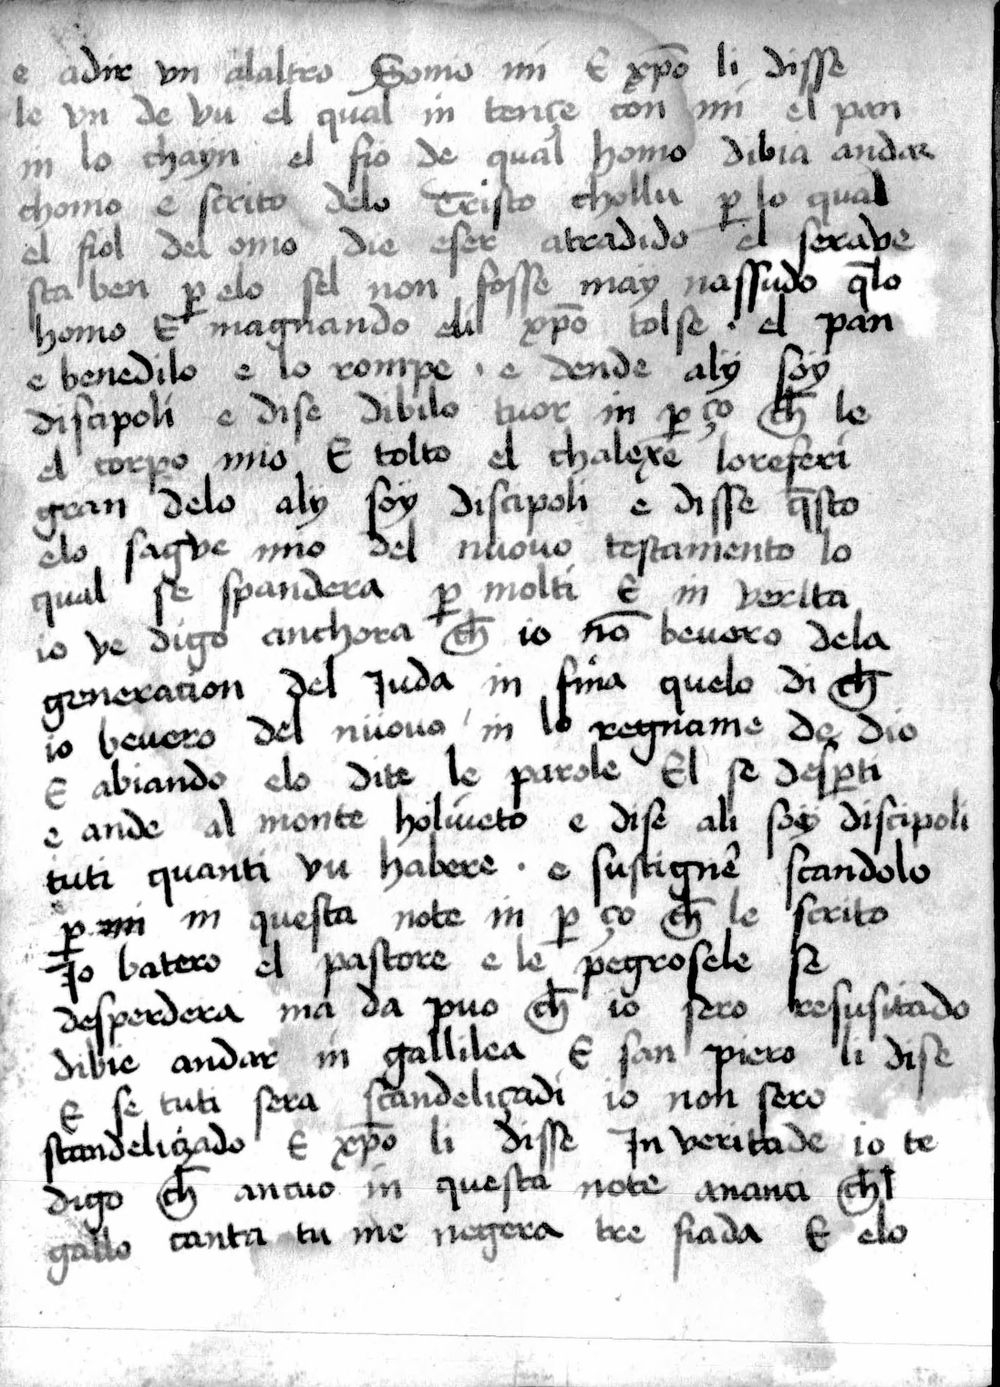 e adir vn alaltro Somo mi E xp̄o li disse
le vn de vu el qual in tençe con mi el pan
in lo chayn el fio de qual homo dibia andar
chomo e scrito delo Tristo chollu ꝑ lo qual
el fiol del omo die eser atradido el serave
sta ben ꝑ elo sel non fosse may nassudo q̄lo
homo E magnando eli xp̄o tolse · el pan
e benedilo e lo rompe · e dende aly soy
discipoli e dise dibilo tuor in ꝑ ço ch̄ le
el corpo mio E tolto el chalexe lo referi
gran delo aly soy discipoli e disse q̄sto
elo sagve mio del nuovo testamento lo
qual se spandera ꝑ molti E in verita
io ve digo anchora ch̄ io nō bevero dela
generation del Juda in fina quelo di ch̄
io bevero del nuovo in lo regname de dio
E abiando elo dite le parole El se desꝑti
e ande al monte holiveto e dise ali soy discipoli
tuti quanti vu habere · e sustignē scandolo
ꝑ mi in questa note in ꝑ ço ch̄ le scrito
Jo batero el pastore e le pegrosele se
desperdera ma da puo ch̄ io sero resusitado
dibie andar in gallilea E san piero li dise
E se tuti sera scandeliçadi io non sero
scandeliçado E xp̄o li disse In veritade io te
digo ch̄ ancuo in questa note ananci ch̄l
gallo canta tu me negera tre fiada E elo